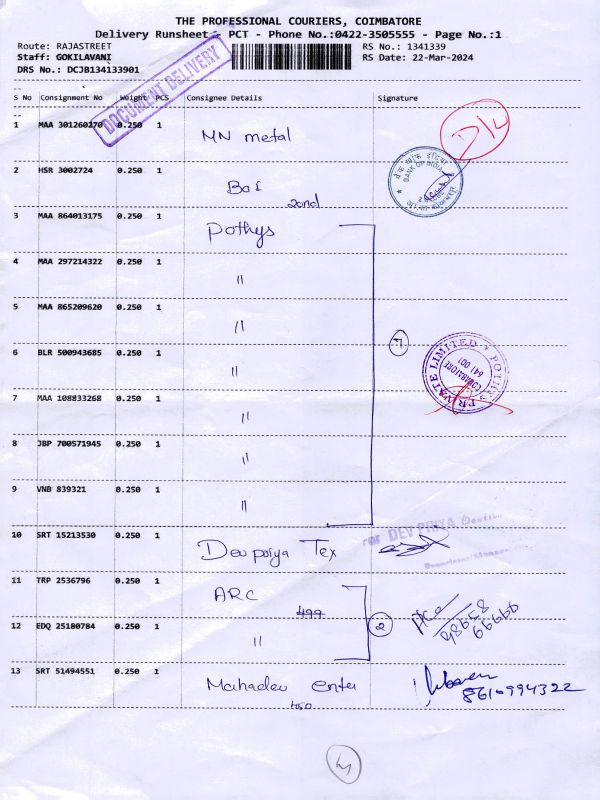 THE PROFESSIONAL COURIERS, COIMBATORE
Delivery Runsheet - PCT - Phone No.:0422-3505555 - Page No.:1
Route: RAJASTREET
RS No.: 1341339
Staff: GOKILAVANI
RS Date: 22-Mar-2024
DRS No.: DCJB134133901
DOCUMENT DELIVERY
S No Consignment No Weight PCS Consignee Details Signature
1 MAA 301260270 0.250 1 MN metal D/L
2 HSR 3002724 0.250 1 BOI
BANK OF INDIA
2and
3 MAA 864013175 0.250 1 Pothys
4 MAA 297214322 0.250 1 "
5 MAA 865209620 0.250 1 "
6 BLR 500943685 0.250 1 " 7
POTHYS PRIVATE LIMITED
COIMBATORE
641 001
7 MAA 108833268 0.250 1 "
8 JBP 700571945 0.250 1 "
9 VNB 839321 0.250 1 "
10 SRT 15213530 0.250 1 Devpriya Tex
For DEV PRIYA
11 TRP 2536796 0.250 1 ARC
499
12 EDQ 25180784 0.250 1 " 2
83986
99999
13 SRT 51494551 0.250 1 Mahadev enter
450
8610994322